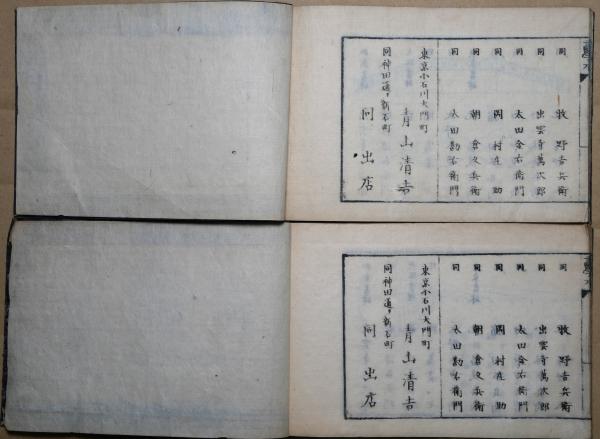 同 牧野吉兵衛
同 出雲寺萬次郎
同 太田金右衛門
同 岡村庄助
同 朝倉久兵衛
同 太田勘右衛門
東京小石川大門町
青山清吉
同神田通り新石町
同出店
同 牧野吉兵衛
同 出雲寺萬次郎
同 太田金右衛門
同 岡村庄助
同 朝倉久兵衛
同 太田勘右衛門
東京小石川大門町
青山清吉
同神田通り新石町
同出店